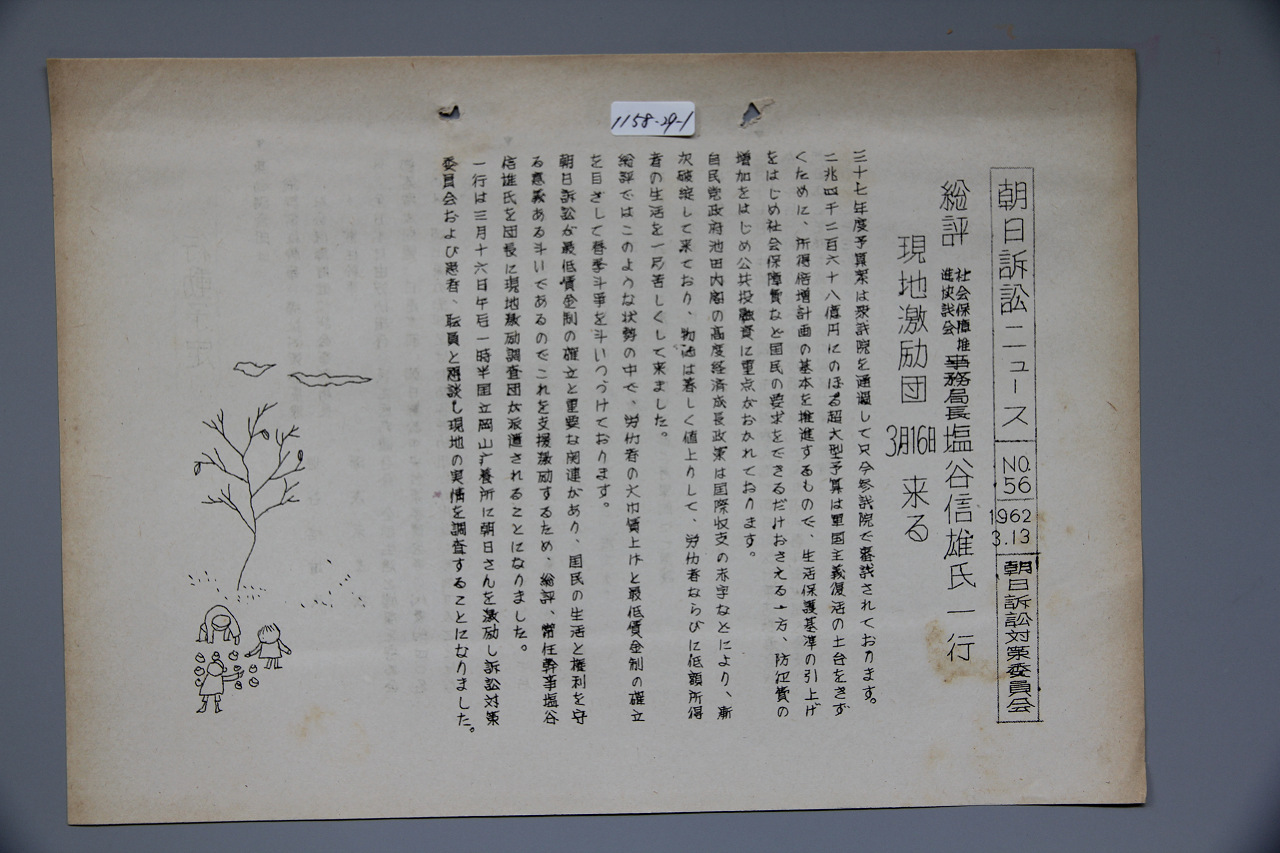 1158-29-1
朝日訴訟ニュース
NO.56
1962 3.13
朝日訴訟対策委員会
総評 社会保障推進協議会 事務局長 塩谷信雄氏一行
現地激励団 3月16日 来る
三十七年度予算案は衆議院を通過して只今参議院で審議されております。
二兆四千二百六十八億円にのぼる超大型予算は軍国主義復活の土台をきず
くために、所得倍増計画の基本を推進するもので、生活保護基準の引上げ
をはじめ社会保障費など国民の要求をできるだけおさえる一方、防衛費の
増加をはじめ公共投融資に重点がおかれております。
自民党政府池田内閣の高度経済成長政策は国際収支の赤字などにより、漸
次破綻して来ており、物価は著しく値上りして、労仂者ならびに低額所得
者の生活を一層苦しくして来ました。
総評ではこのような状勢の中で、労仂者の大巾賃上げと最低賃金制の確立
を目ざして春季斗争を斗いつづけております。
朝日訴訟が最低賃金制の確立と重要な関連があり、国民の生活と権利を守
る意義ある斗いであるのでこれを支援激励するため、総評、常任幹事塩谷
信雄氏を団長に現地激励調査団が派遣されることになりました。
一行は三月十六日午后一時半国立岡山療養所に朝日さんを激励し訴訟対策
委員会および患者、職員と懇談し現地の実情を調査することになりました。